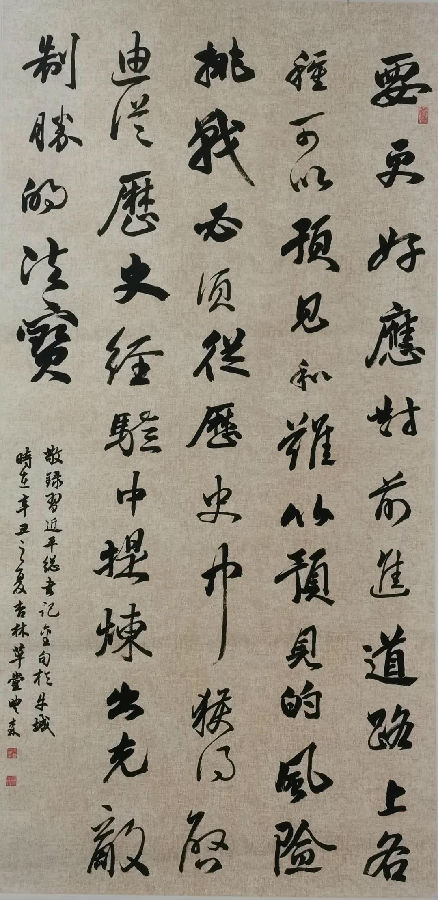 要更好應對前進道路上各
種可以預見和難以預見的風險
挑戰必須從歷史中獲得啟
迪從歷史經驗中提煉出克敵
制勝的法寶
敬録習近平總書記金句於
時在辛丑之夏吉林草堂